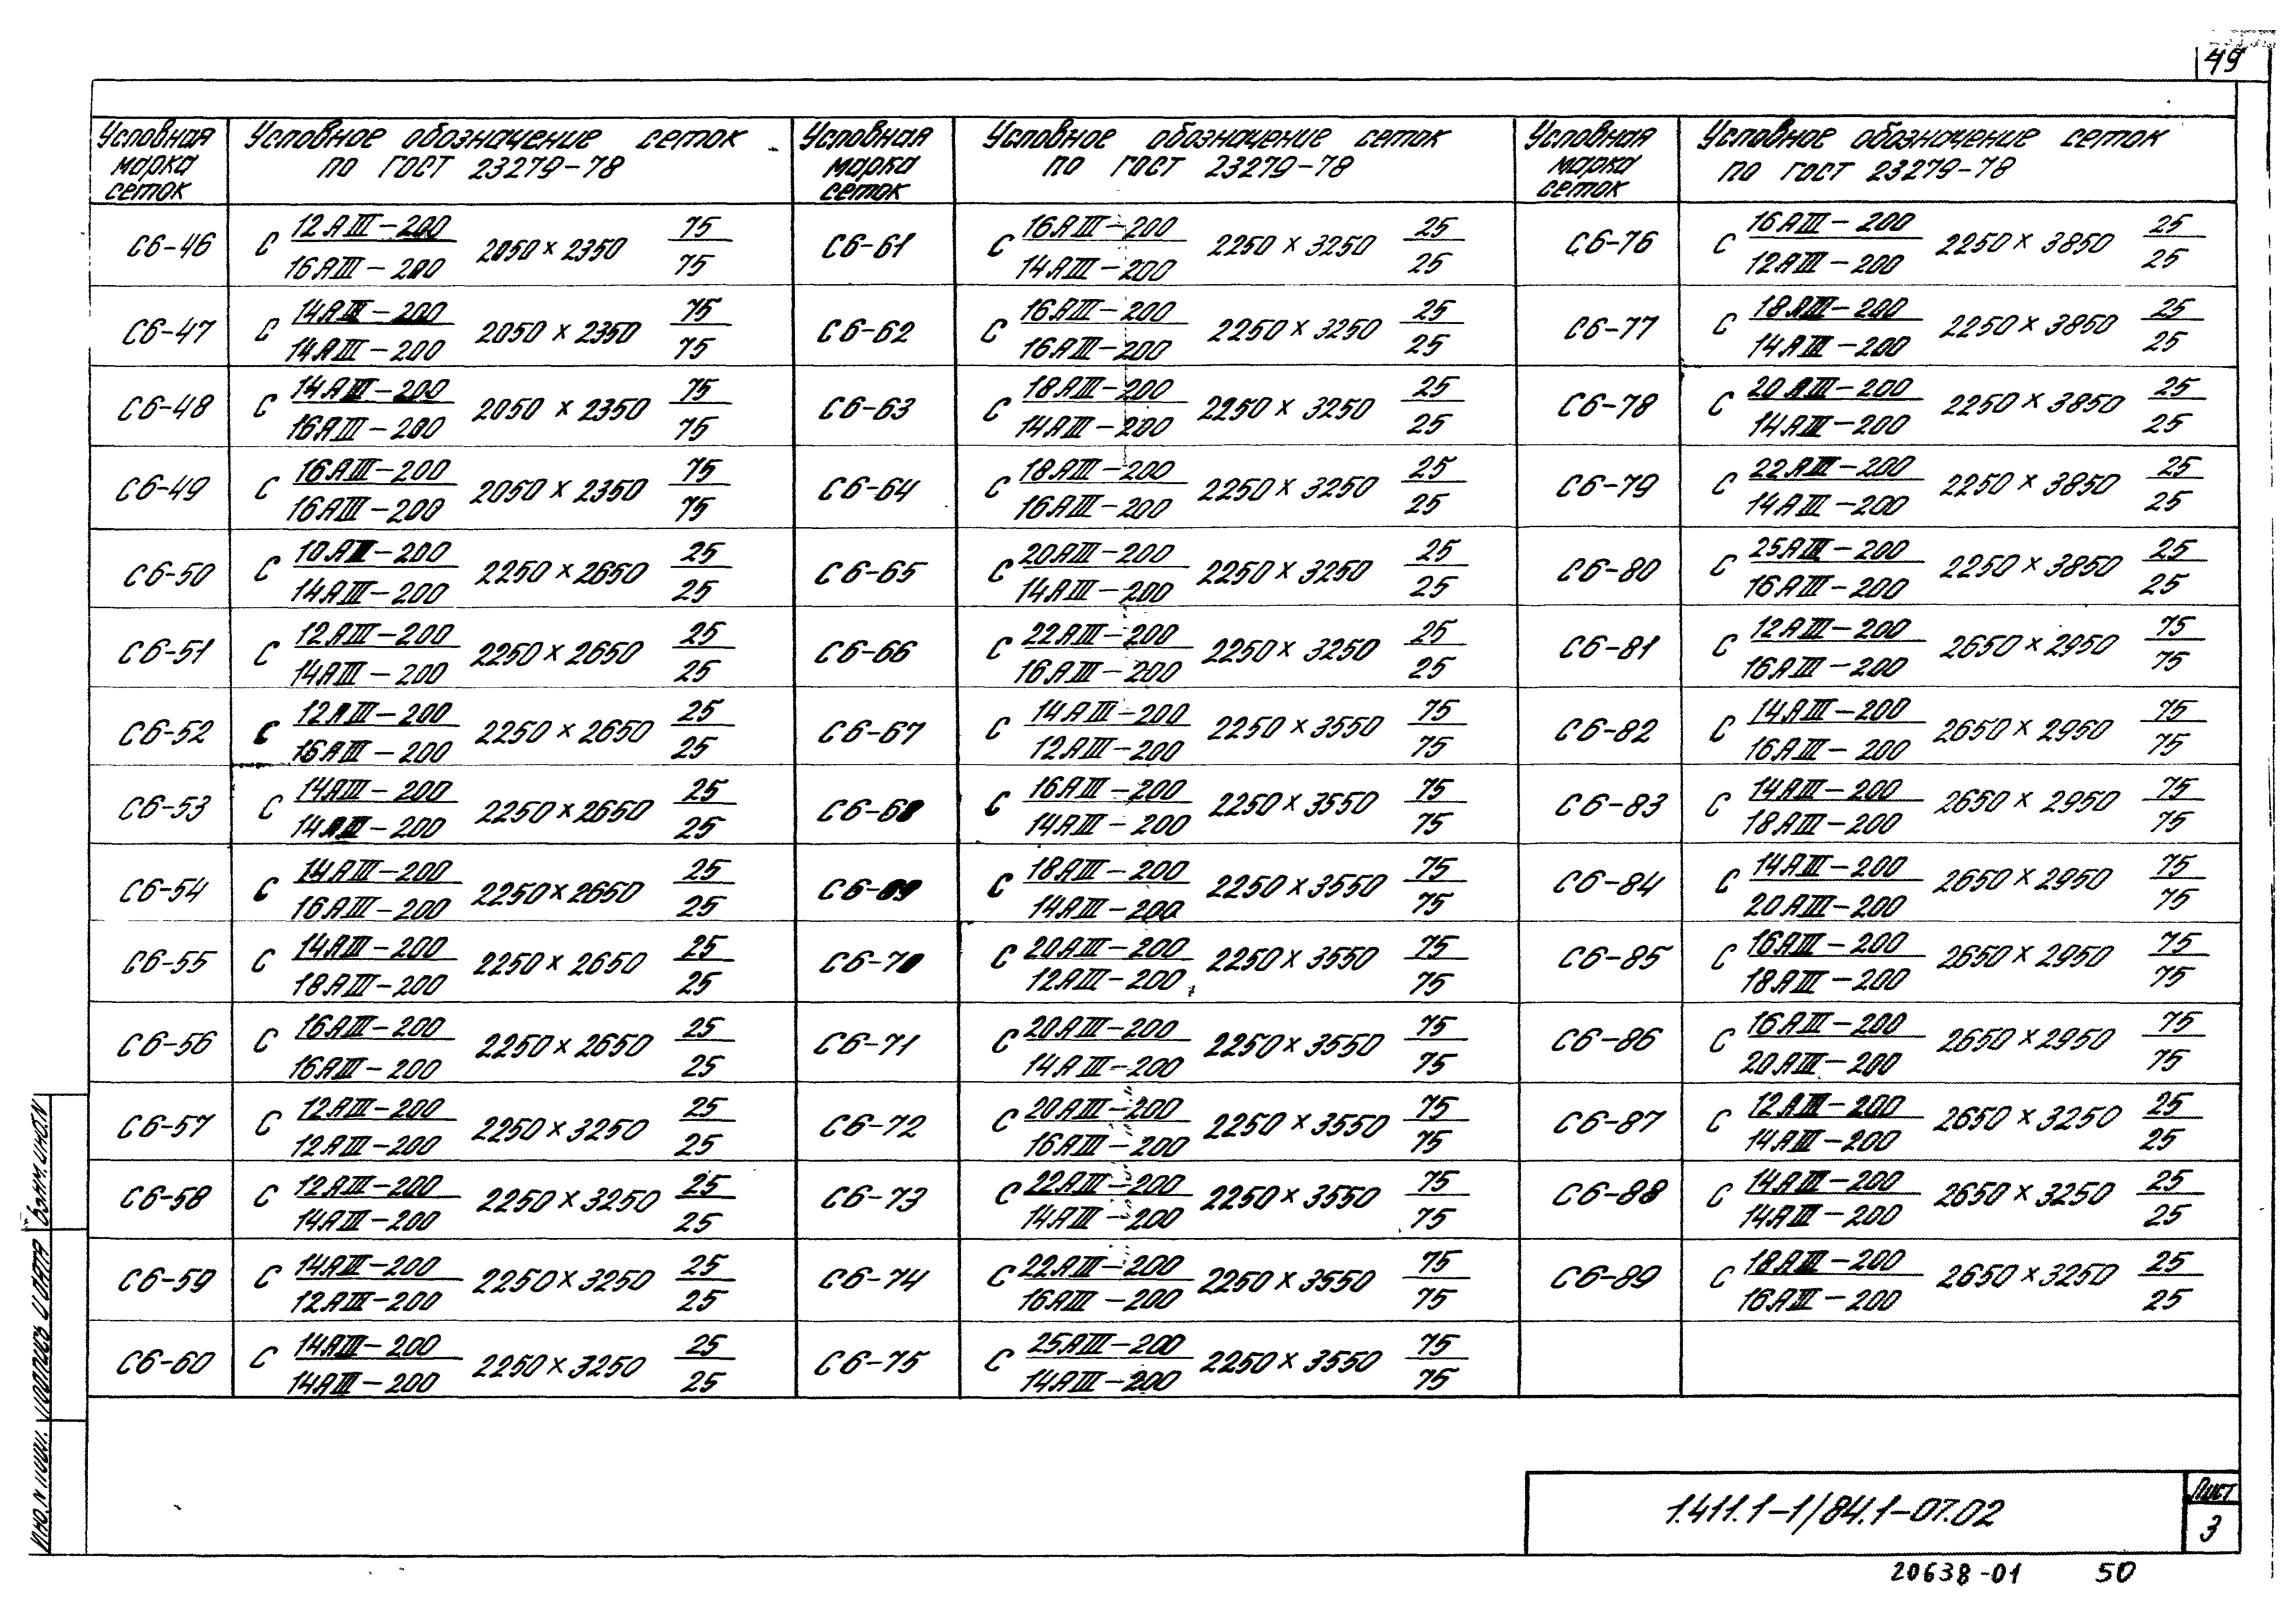 49
Условная марка сеток | Условное обозначение сеток по ГОСТ 23279-78 | Условная марка сеток | Условное обозначение сеток по ГОСТ 23279-78 | Условная марка сеток | Условное обозначение сеток по ГОСТ 23279-78
С6-46 | С 12АIII-200/16АIII-200 2050×2350 75/75 | С6-61 | С 16АIII-200/14АIII-200 2250×3250 25/25 | С6-76 | С 16АIII-200/12АIII-200 2250×3850 25/25
С6-47 | С 14АIII-200/14АIII-200 2050×2350 75/75 | С6-62 | С 16АIII-200/16АIII-200 2250×3250 25/25 | С6-77 | С 18АIII-200/14АIII-200 2250×3850 25/25
С6-48 | С 14АIII-200/16АIII-200 2050×2350 75/75 | С6-63 | С 18АIII-200/14АIII-200 2250×3250 25/25 | С6-78 | С 20АIII-200/14АIII-200 2250×3850 25/25
С6-49 | С 16АIII-200/16АIII-200 2050×2350 75/75 | С6-64 | С 18АIII-200/16АIII-200 2250×3250 25/25 | С6-79 | С 22АIII-200/14АIII-200 2250×3850 25/25
С6-50 | С 10АIII-200/14АIII-200 2250×2650 25/25 | С6-65 | С 20АIII-200/14АIII-200 2250×3250 25/25 | С6-80 | С 25АIII-200/16АIII-200 2250×3850 25/25
С6-51 | С 12АIII-200/14АIII-200 2250×2650 25/25 | С6-66 | С 22АIII-200/16АIII-200 2250×3250 25/25 | С6-81 | С 12АIII-200/16АIII-200 2650×2950 75/75
С6-52 | С 12АIII-200/16АIII-200 2250×2650 25/25 | С6-67 | С 14АIII-200/12АIII-200 2250×3550 75/75 | С6-82 | С 14АIII-200/16АIII-200 2650×2950 75/75
С6-53 | С 14АIII-200/14АIII-200 2250×2650 25/25 | С6-68 | С 16АIII-200/14АIII-200 2250×3550 75/75 | С6-83 | С 14АIII-200/18АIII-200 2650×2950 75/75
С6-54 | С 14АIII-200/16АIII-200 2250×2650 25/25 | С6-69 | С 18АIII-200/14АIII-200 2250×3550 75/75 | С6-84 | С 14АIII-200/20АIII-200 2650×2950 75/75
С6-55 | С 14АIII-200/18АIII-200 2250×2650 25/25 | С6-70 | С 20АIII-200/12АIII-200 2250×3550 75/75 | С6-85 | С 16АIII-200/18АIII-200 2650×2950 75/75
С6-56 | С 16АIII-200/16АIII-200 2250×2650 25/25 | С6-71 | С 20АIII-200/14АIII-200 2250×3550 75/75 | С6-86 | С 16АIII-200/20АIII-200 2650×2950 75/75
С6-57 | С 12АIII-200/12АIII-200 2250×3250 25/25 | С6-72 | С 20АIII-200/16АIII-200 2250×3550 75/75 | С6-87 | С 12АIII-200/14АIII-200 2650×3250 25/25
С6-58 | С 12АIII-200/14АIII-200 2250×3250 25/25 | С6-73 | С 22АIII-200/14АIII-200 2250×3550 75/75 | С6-88 | С 14АIII-200/14АIII-200 2650×3250 25/25
С6-59 | С 14АIII-200/12АIII-200 2250×3250 25/25 | С6-74 | С 22АIII-200/16АIII-200 2250×3550 75/75 | С6-89 | С 18АIII-200/16АIII-200 2650×3250 25/25
С6-60 | С 14АIII-200/14АIII-200 2250×3250 25/25 | С6-75 | С 25АIII-200/14АIII-200 2250×3550 75/75
Инв.N подл. Подпись и дата Взам.инв.N
1.411.1-1/84.1-07.02
Лист
3
20638-01 50